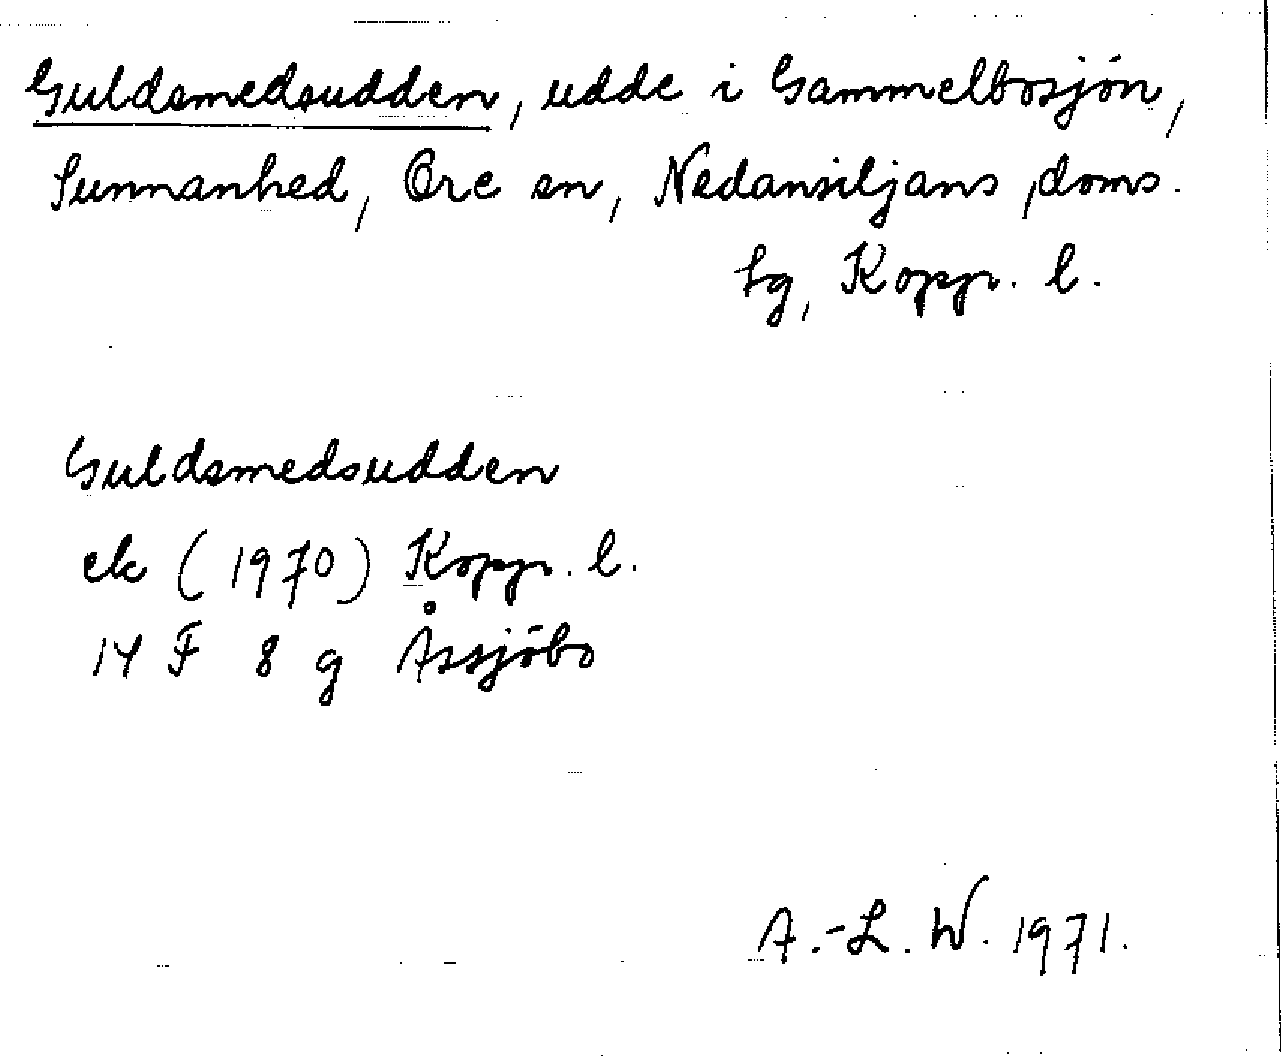 Guldsmedsudden, udde i Gammelbosjön,
Sunnanhed, Ore sn, Nedansiljans doms.
hg, Koppr. l.
Guldsmedsudden
ek (1970) Koppr. l.
14 F 8 g Åssjöbo
A.-L. W. 1971.